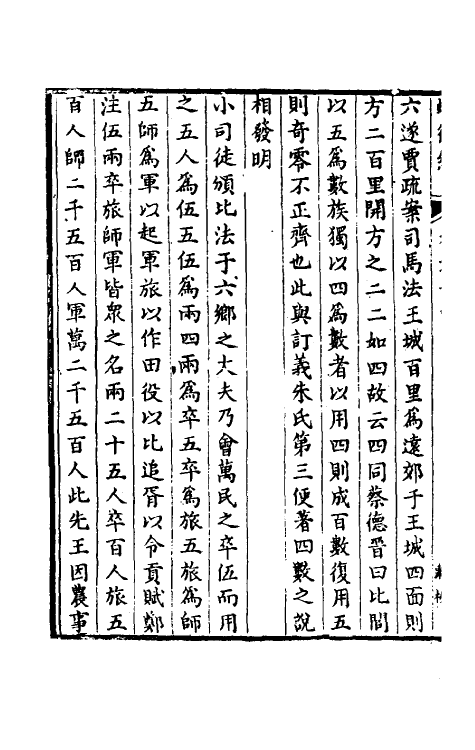 六遂賈疏案司馬法王城百里爲遠郊于王城四面則
方二百里開方之二二如四故云四同蔡德晉曰比閭
以五爲數族獨以四爲數者以用四則成百數復用五
則奇零不正齊也此與訂義朱氏第三便著四數之說
相發明
小司徒頒比法于六鄉之大夫乃會萬民之卒伍而用
之五人爲伍五伍爲兩四兩爲卒五卒爲旅五旅爲師
五師爲軍以起軍旅以作田役以比追胥以令貢賦鄭
注伍兩卒旅師軍皆衆之名兩二十五人卒百人旅五
百人師二千五百人軍萬二千五百人此先王因農事